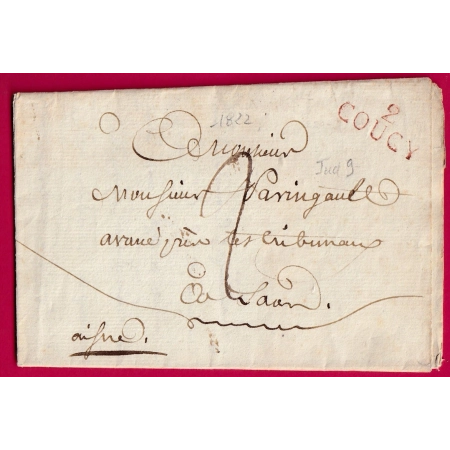 1822
2
COUCY
A Monsieur
Ind 9
Monsieur Paringault
2
avoué près les tribunaux
à Laon.
aisne.